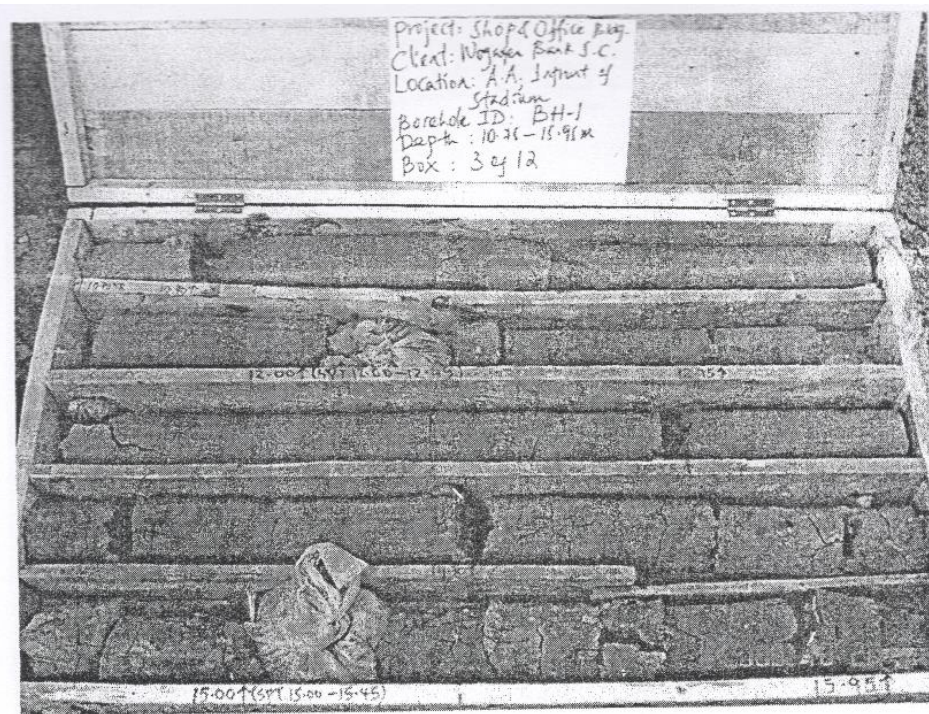 Project: Shop & Office Bldg.
Client: Wegagen Bank S.C.
Location: A.A. Infront of
Stadium
Borehole ID: BH-1
Depth: 10.75-15.95m
Box: 3 of 12
12.00↑(SPT 12.00-12.45)
12.95↑
15.00↑(SPT 15.00-15.45)
15.95↑